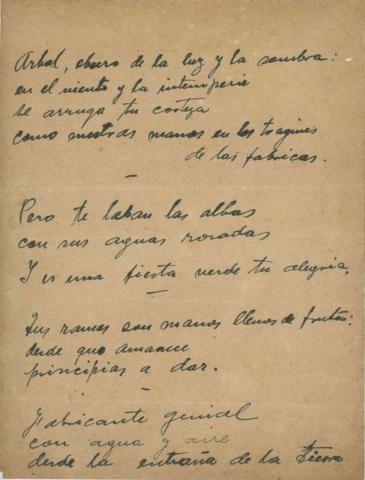 Arbol, obrero de la luz y la sombra:
en el viento y la intemperie
se arruga tu corteza
como nuestras manos en los tragines
de las fabricas.
—
Pero te laban las albas
con sus aguas rosadas
Y es una fiesta verde tu alegria.
—
Tus ramas son manos llenas de frutos:
desde que amanece
principias a dar.
Fabricante genial
con agua y aire
desde la entraña de la tierra